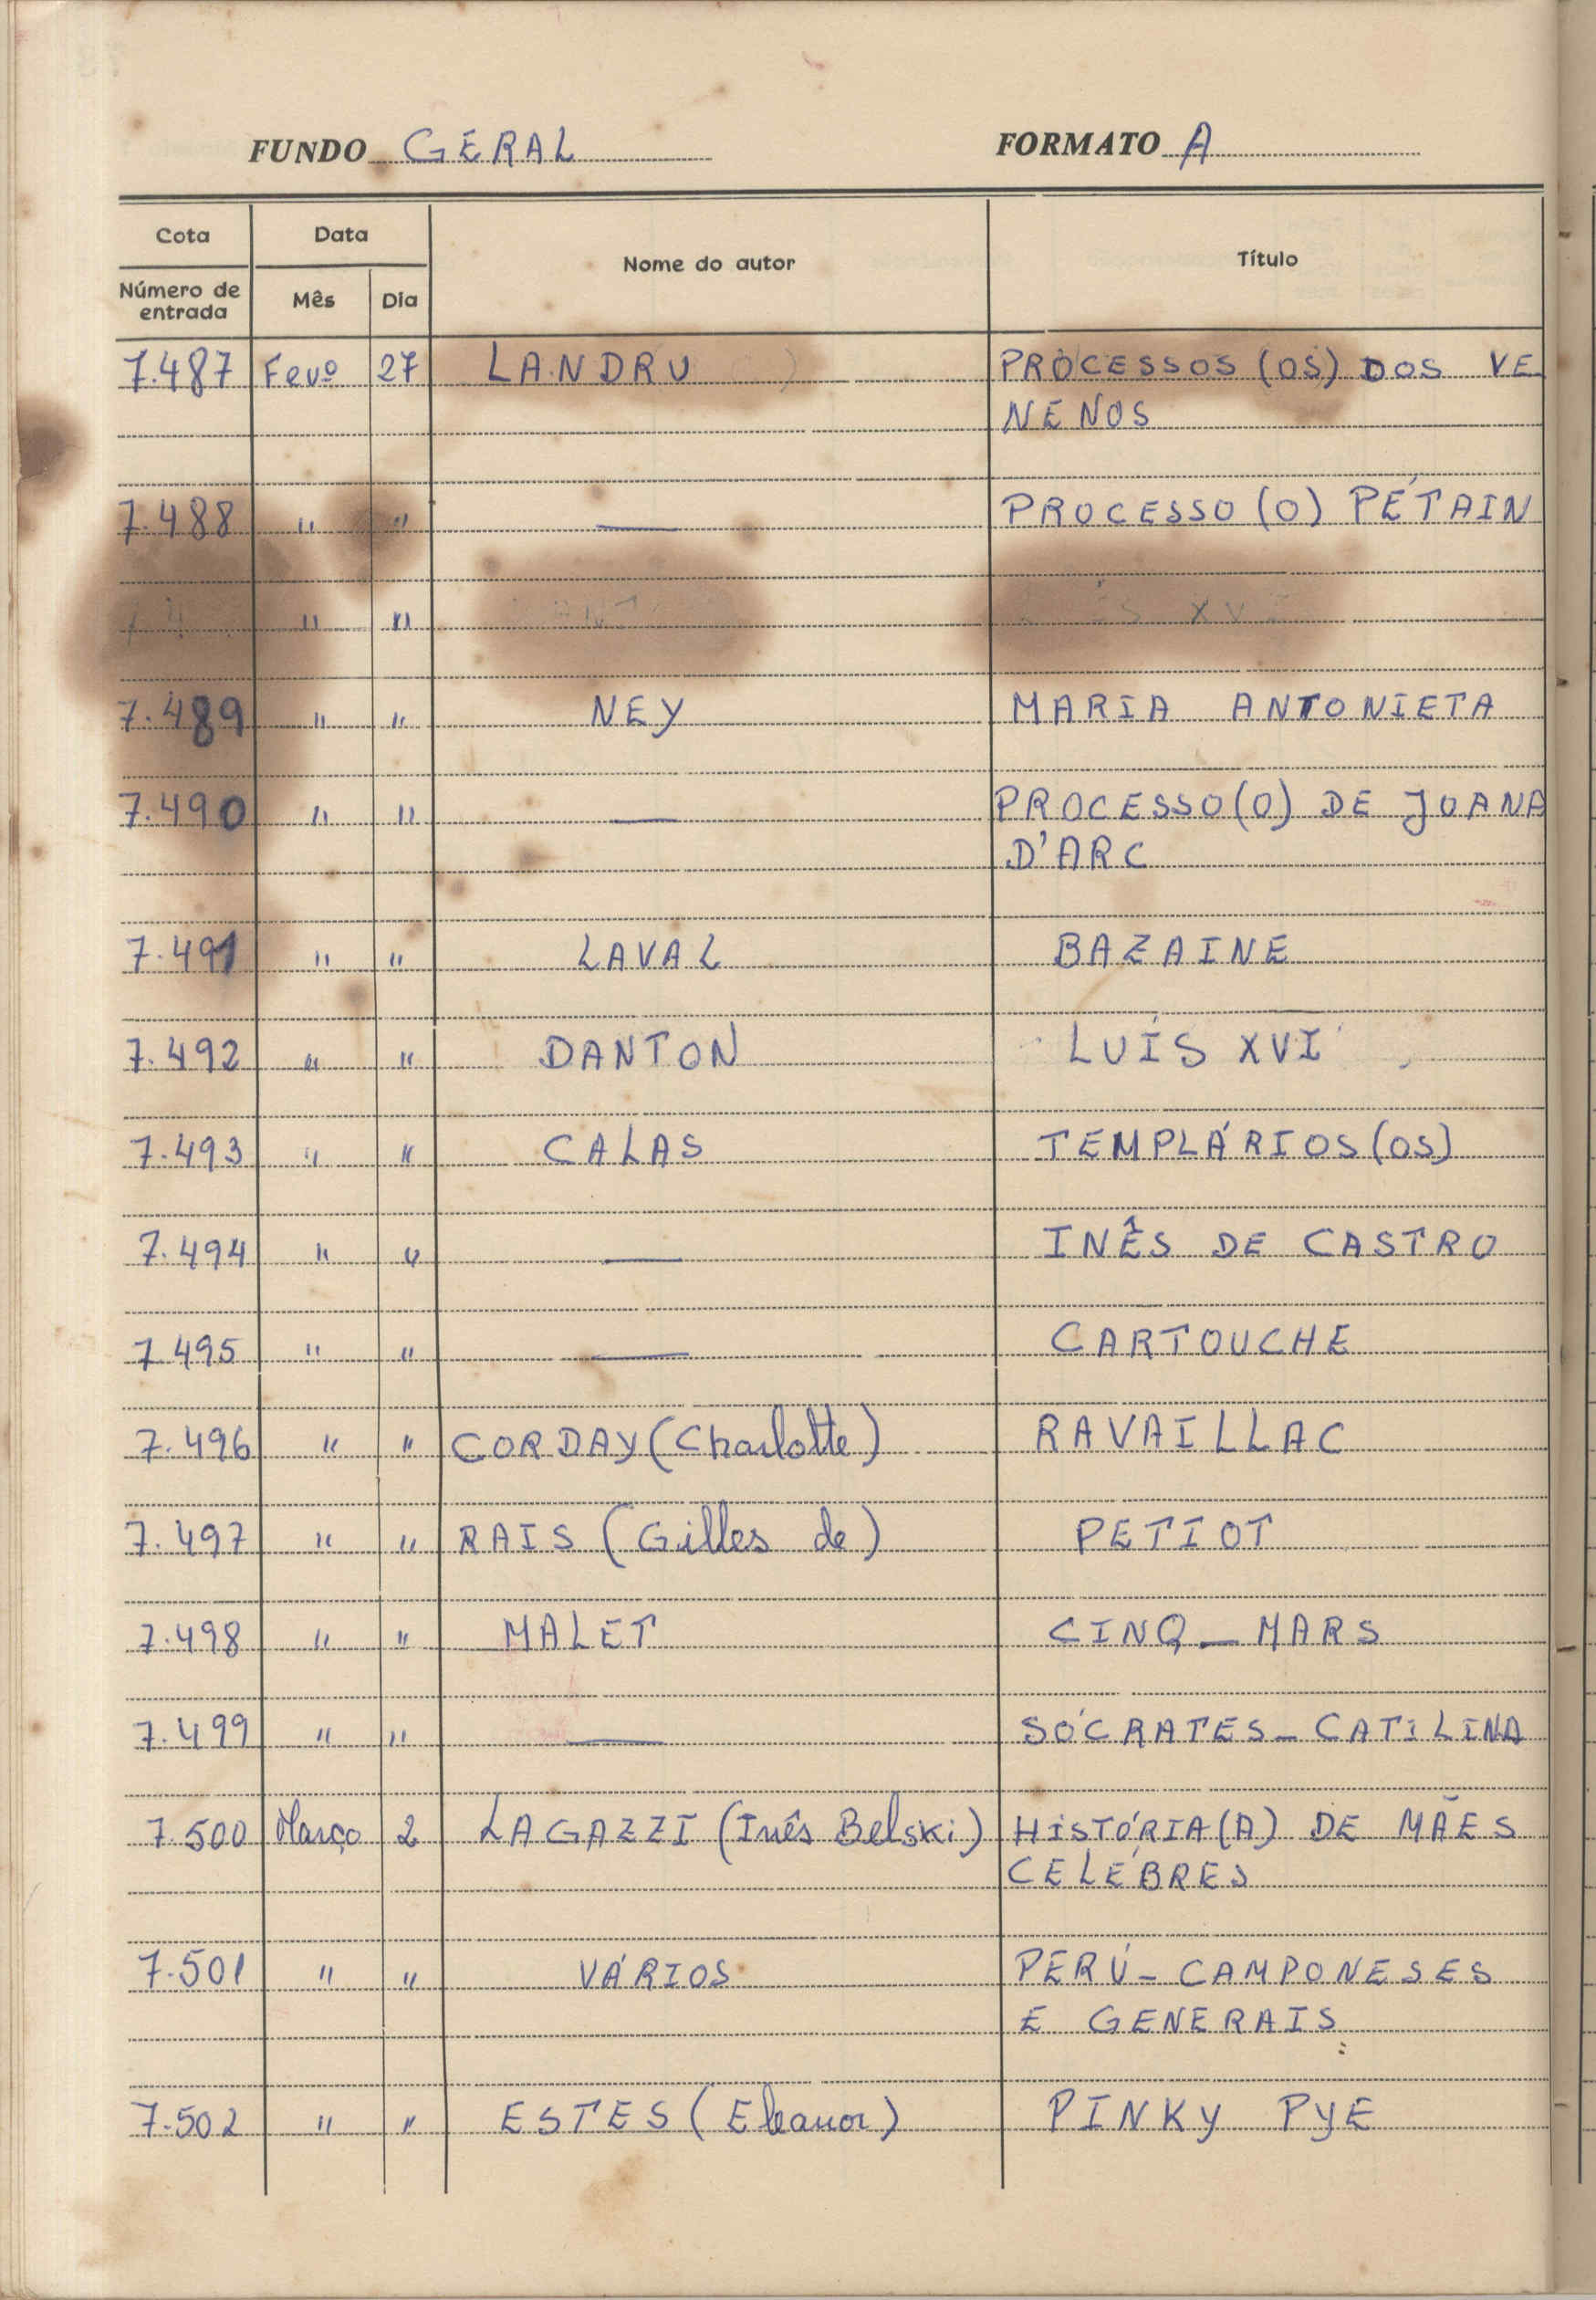 FUNDO GERAL FORMATO A
Cota Data Nome do autor Título
Número de entrada Mês Dia
7.487 Fevº 27 LANDRU PROCESSOS (OS) DOS VE
NENOS
7.488 " " — PROCESSO (O) PÉTAIN
" " XVI
7.489 " " NEY MARIA ANTONIETA
7.490 " " — PROCESSO (O) DE JOANA
D'ARC
7.491 " " LAVAL BAZAINE
7.492 " " DANTON LUÍS XVI
7.493 " " CALAS TEMPLÁRIOS (OS)
7.494 " " — INÊS DE CASTRO
7.495 " " — CARTOUCHE
7.496 " " CORDAY (Charlotte) RAVAILLAC
7.497 " " RAIS (Gilles de) PETIOT
7.498 " " MALET CINQ-MARS
7.499 " " — SÓCRATES - CATILINA
7.500 Março 2 LAGAZZI (Inês Belski) HISTÓRIA (A) DE MÃES
CELÉBRES
7.501 " " VÁRIOS PERÚ - CAMPONESES
E GENERAIS
7.502 " " ESTES (Eleanor) PINKY PYE